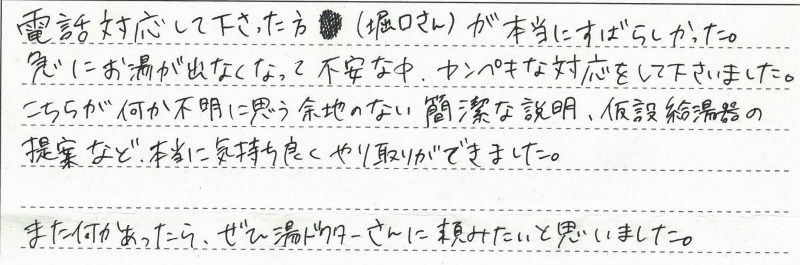 電話対応して下さった方 (堀口さん) が本当にすばらしかった。
急にお湯が出なくなって不安な中、カンペキな対応をして下さいました。
こちらが何か不明に思う余地のない簡潔な説明、仮設給湯器の
提案など、本当に気持ち良くやり取りができました。
また何かあったら、ぜひ湯ドクターさんに頼みたいと思いました。